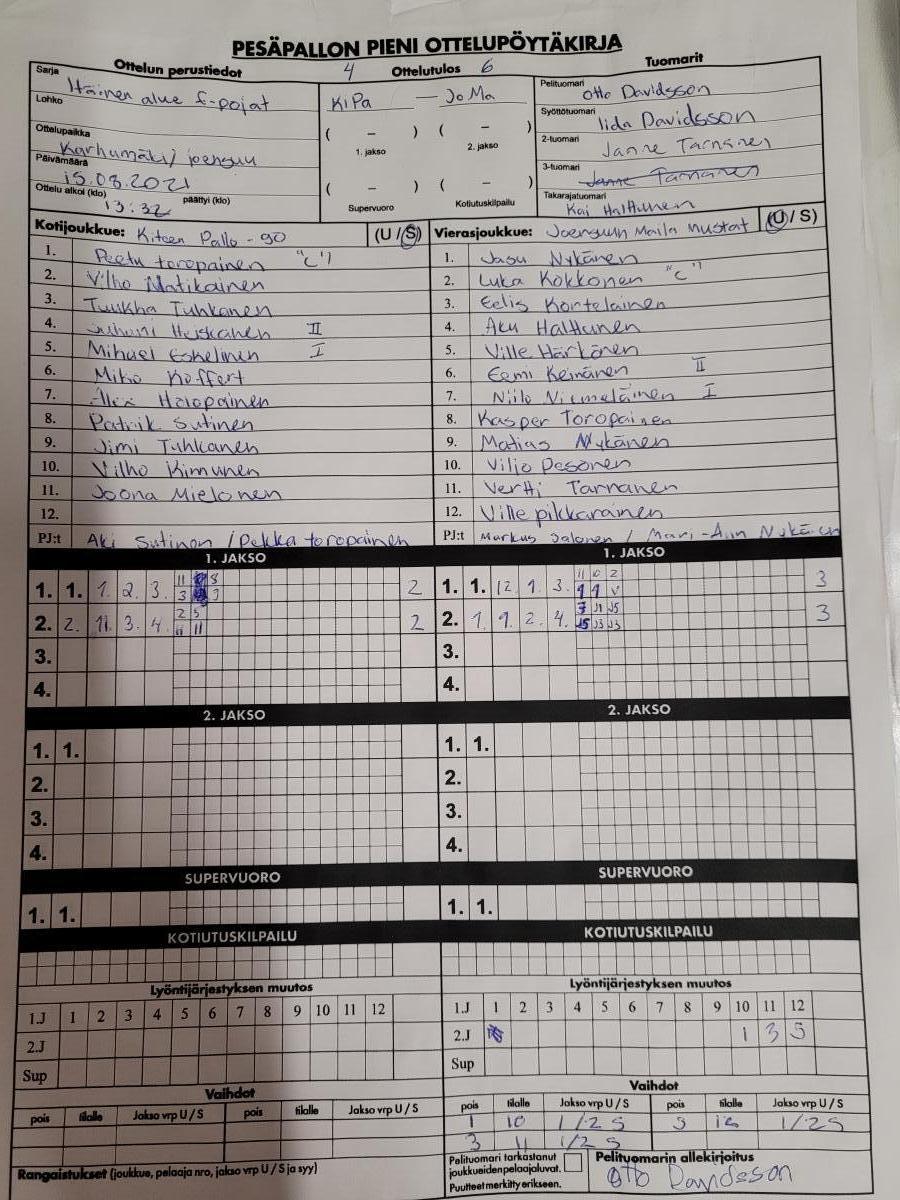 PESÄPALLON PIENI OTTELUPÖYTÄKIRJA
Ottelun perustiedot
4 Ottelutulos 6
Tuomarit
Sarja Itäinen alue f-pojat
Lohko
Ottelupaikka Karhumäki/joensuu
Päivämäärä 15.08.2021
Ottelu alkoi (klo) 13:32 päättyi (klo)
KiPa — JoMa
( – ) ( – )
1. jakso 2. jakso
( – ) ( – )
Supervuoro Kotiutuskilpailu
Pelituomari Otto Davidsson
Syöttötuomari Iida Davidsson
2-tuomari Janne Tarnanen
3-tuomari Janne Tarnanen
Takarajatuomari Kai Halttunen
Kotijoukkue: Kiteen Pallo -90 (U / S)
1. Peetu toropainen "C"
2. Vilho Matikainen
3. Tuukka Tuhkanen
4. Juhani Heiskanen II
5. Mihael Eskelinen I
6. Miko Koffert
7. Alex Haropainen
8. Patrik Sutinen
9. Jimi Tuhkanen
10. Vilho Kinnunen
11. Joona Mielonen
12.
PJ:t Aki Sutinon / Pekka toropainen
Vierasjoukkue: Joensuun Maila Mustat (U / S)
1. Jasu Nykänen
2. Luka Kokkonen "C"
3. Eelis Kontelainen
4. Aku Halttunen
5. Ville Härkönen
6. Eemi Keinänen II
7. Niilo Niemeläinen I
8. Kasper Toropainen
9. Matias Nykänen
10. Viljo Pesonen
11. Vertti Tarnanen
12. Ville pikkarainen
PJ:t Markus Jalonen / Mari-Ann
1. JAKSO
1. 1. 1. 2. 3. 2
2. 2. 11. 3. 4. 2
3.
4.
1. JAKSO
1. 1. 12. 1. 3. 3
2. 1. 9. 2. 4. 3
3.
4.
2. JAKSO
1. 1.
2.
3.
4.
2. JAKSO
1. 1.
2.
3.
4.
SUPERVUORO
1. 1.
SUPERVUORO
1. 1.
KOTIUTUSKILPAILU
KOTIUTUSKILPAILU
Lyöntijärjestyksen muutos
1.J 1 2 3 4 5 6 7 8 9 10 11 12
2.J
Sup
Lyöntijärjestyksen muutos
1.J 1 2 3 4 5 6 7 8 9 10 11 12
2.J 1 3 5
Sup
Vaihdot
pois tilalle Jakso vrp U / S pois tilalle Jakso vrp U / S
Vaihdot
pois tilalle Jakso vrp U / S pois tilalle Jakso vrp U / S
1 10 1/2 S 5 12 1/2S
3 11 1/2 S
Rangaistukset (joukkue, pelaaja nro, jakso vrp U / S ja syy)
Pelituomari tarkastanut
joukkueidenpelaajaluvat.
Puutteet merkitty erikseen.
Pelituomarin allekirjoitus
Otto Davidsson